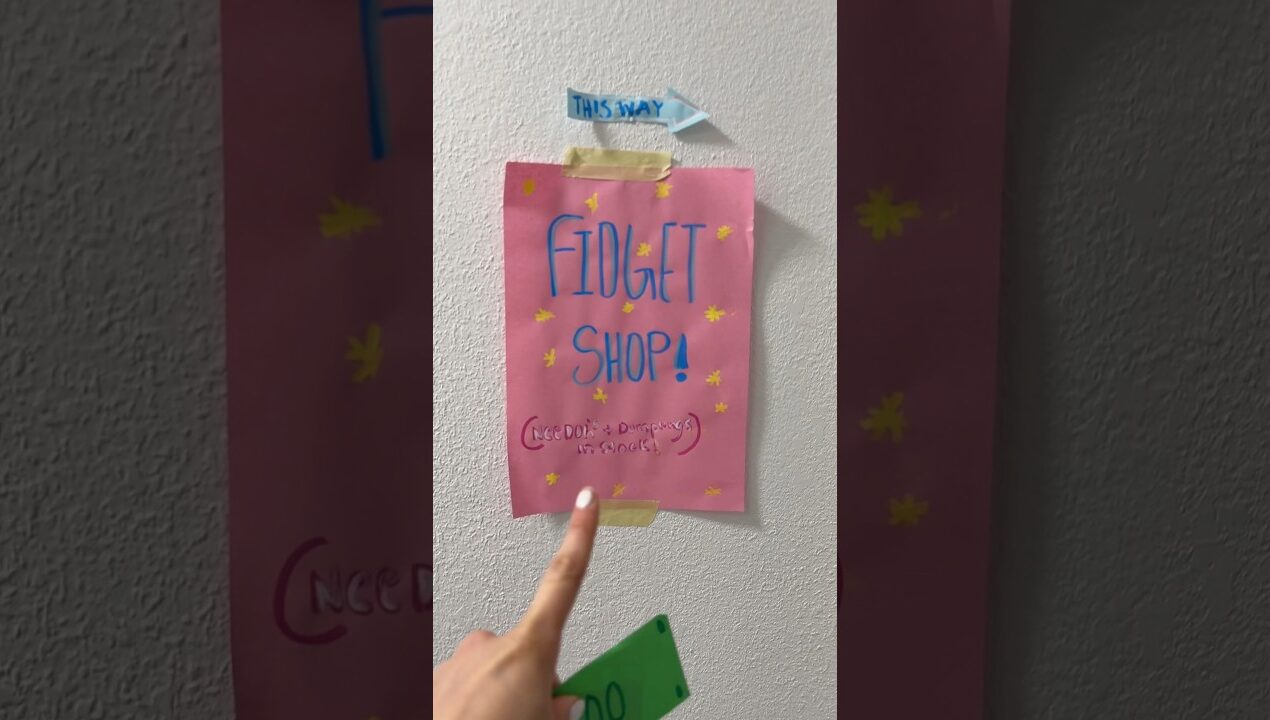 THIS WAY
FIDGET
SHOP!
(NEEDOH + Dumplings
in STOCK!)